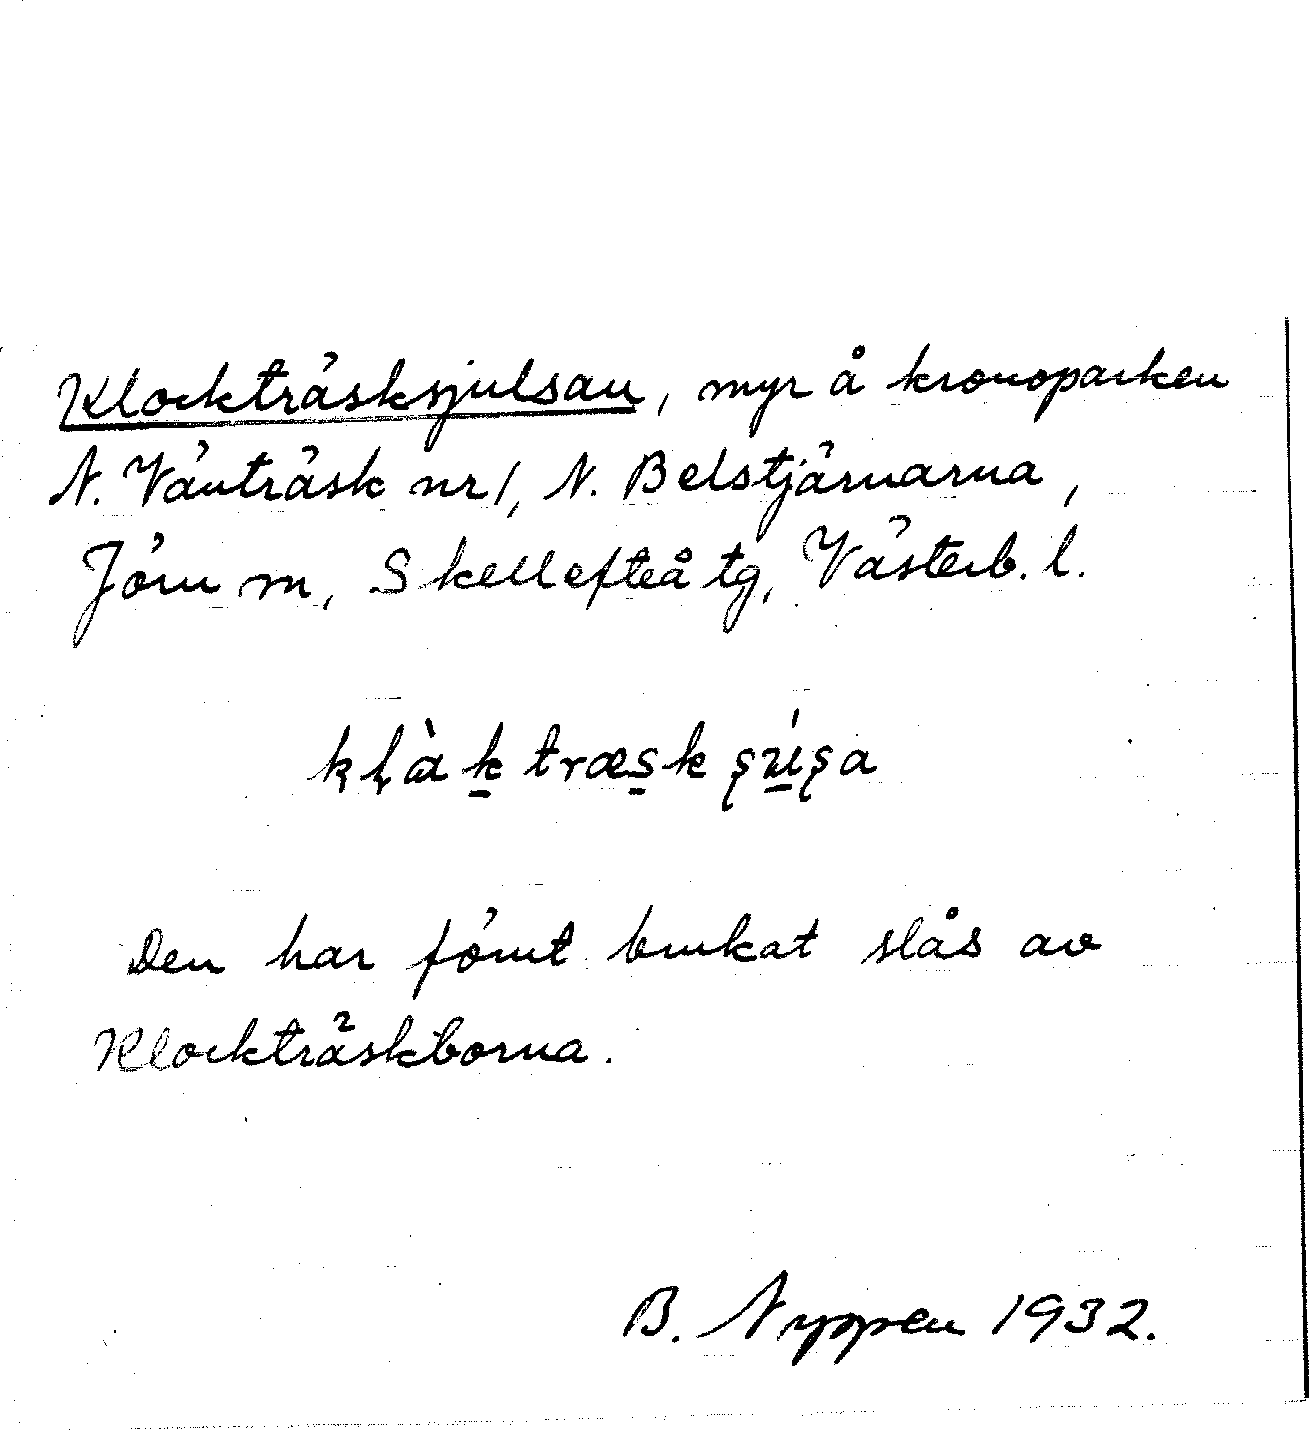 Klockträsksjulsan, myr å kronoparken
N. Vänträsk nr 1, N. Belstjärnarna,
Jörn sn, Skellefteå tg, Västerb. l.
Den har förut brukat slås av
Klockträskborna.
B. Nyppen 1932.